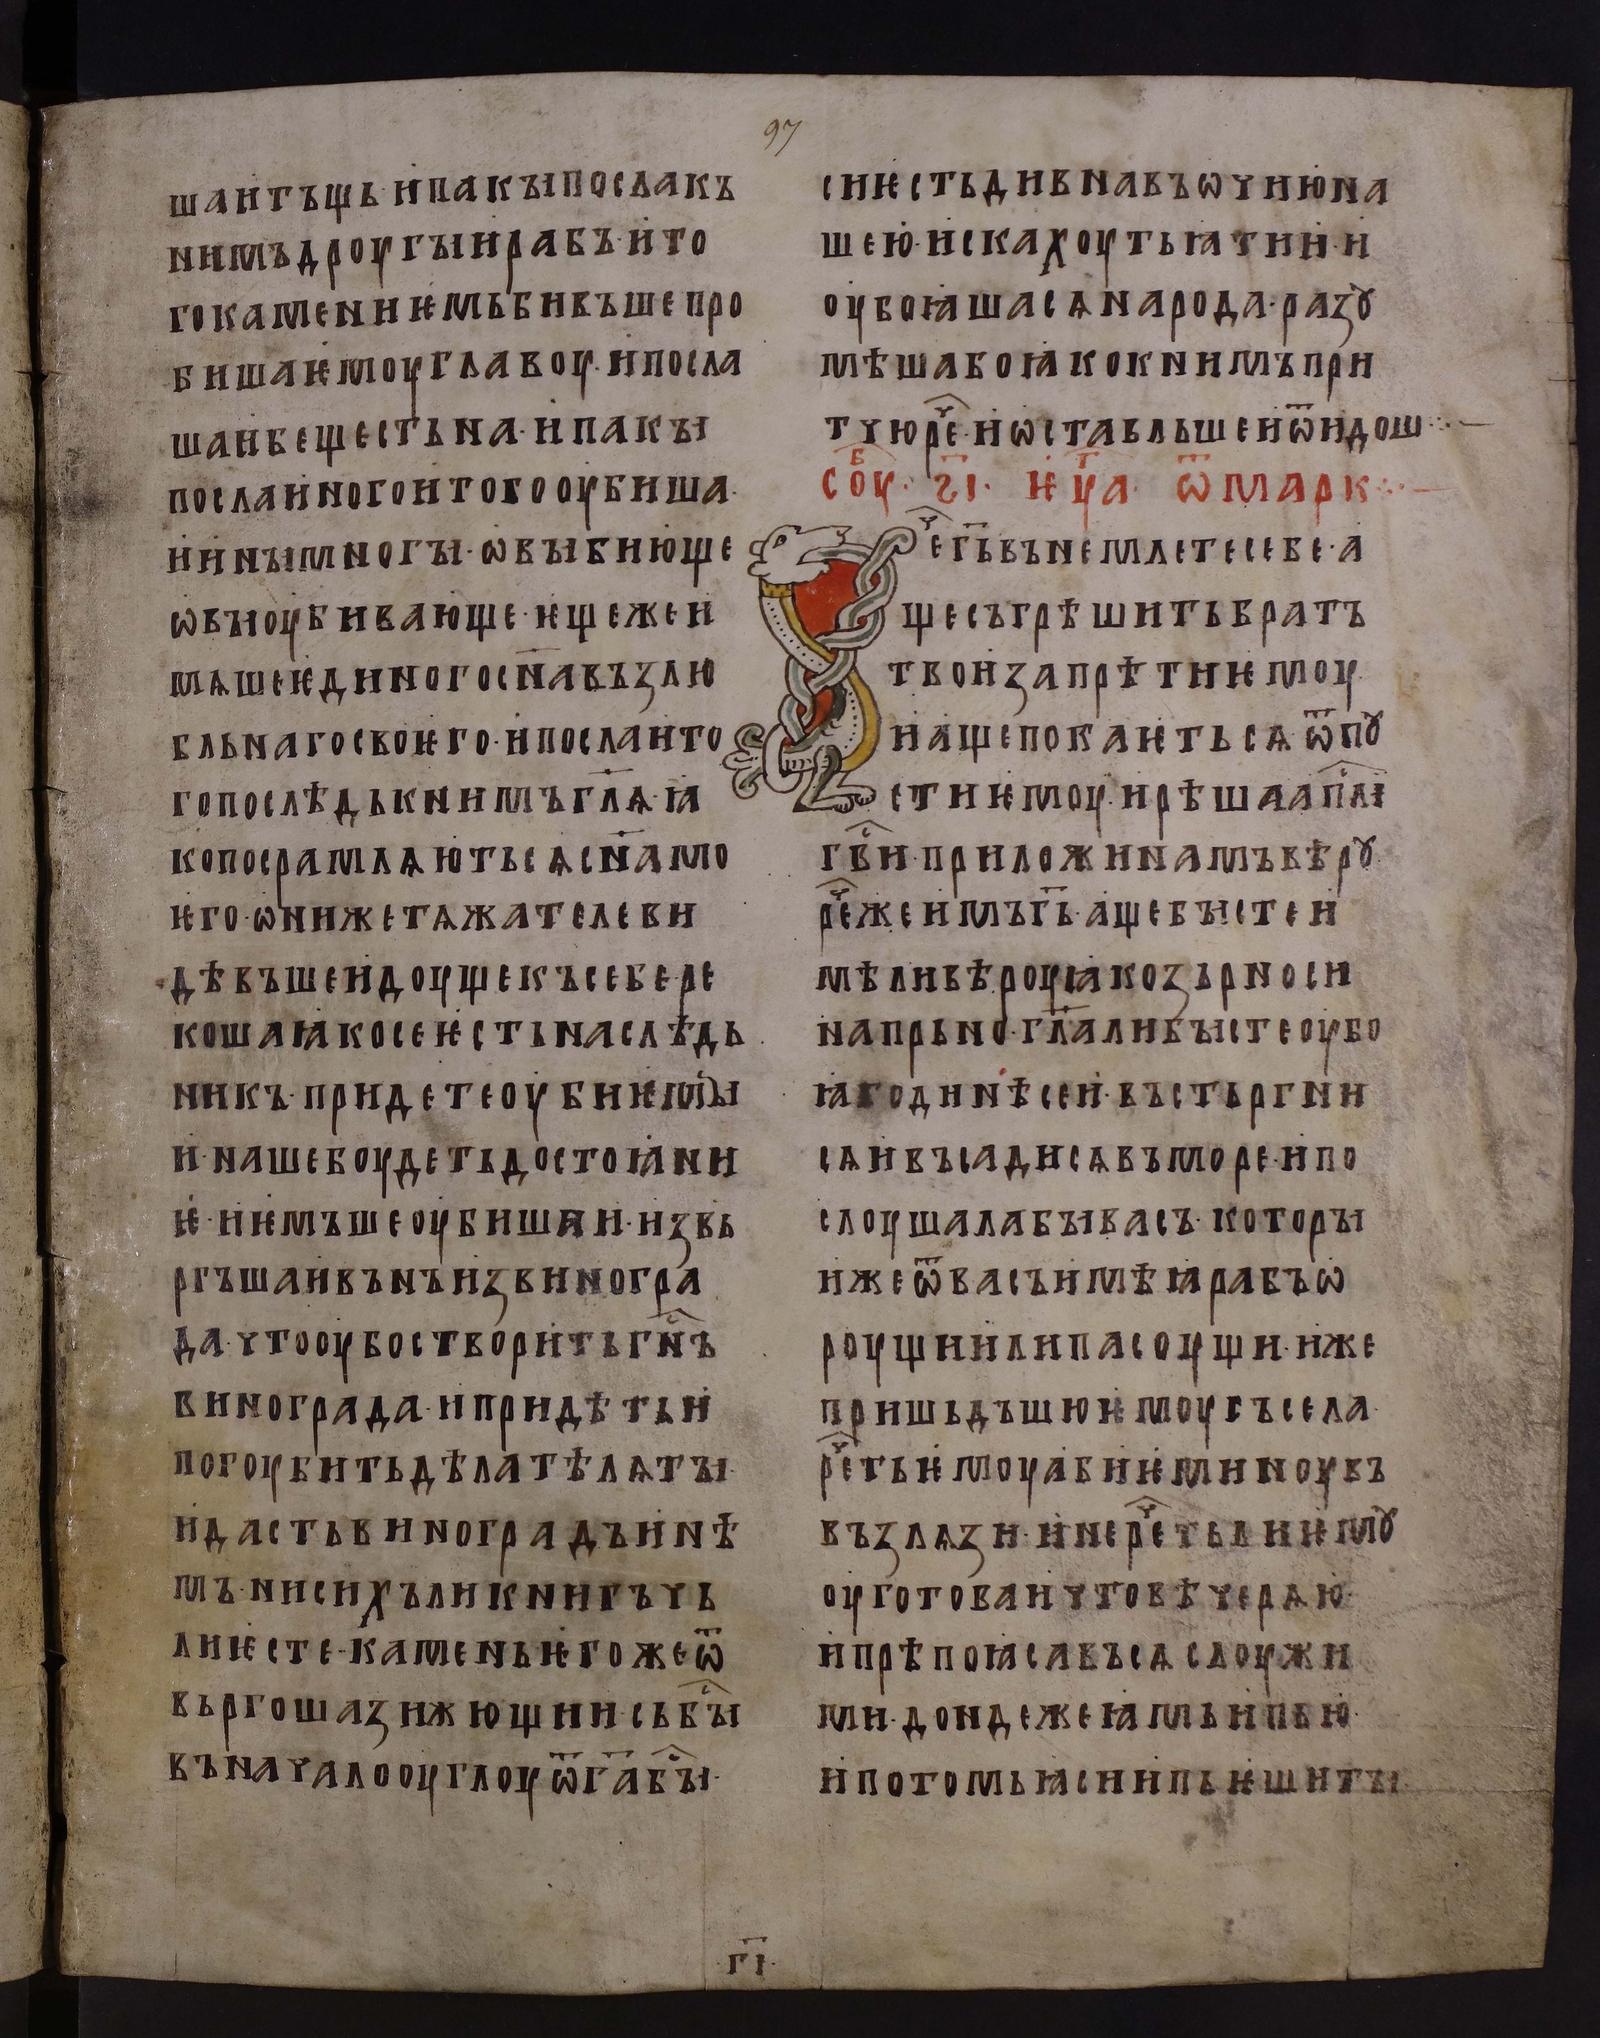 97
шаитъщь· и҆пакꙑпослакъ
нимъдроугꙑи҆рабъ· и҆то
гокаменнѥмьбивъшепро
бишаѥ҆моуглавоу· и҆посла
шаибещестьна· и҆пакꙑ
послаи҆ногоитогооубиша·
и҆инꙑмногꙑ· ѡвꙑбиюще
ѡвꙑоубивающе· ѥщежеи
мѧшеѥдиногосн҃авъзлю
бльнагосвоѥго· и҆посланто
гопослѣдькнимъгл҃ѧ· ꙗ
копосрамлѧютьсѧсн҃амо
ѥго· ѡнижетѧжателеви
дѣвъшеи҆доущекъсебере
кошаꙗкосеѥстьнаслѣдь
никъ· придетеоубиѥмꙑ
и· нашебоудетьдостоꙗни
ѥ· и҆ѥмъшеоубишаи· извь
ргъшаивънъизвиногра
да· чтооубостворитьгн҃ъ
винограда· и҆придѣтьи҆
погоубитьдѣлателѧтꙑ·
и҆дастьвиноградъи҆нѣ
мъ· нисихълиꙁкнигъчь
лиѥсте· каменьѥгожеѿ
вьргошазижющии· сьбꙑ҇
въначалооуглоуѿг҃абꙑ҇·
сиѥстьдивнавъѡчиюна
шею· и҆скахоутьꙗтии· и
оубоꙗшасѧнарода· разꙋ
мѣшабоꙗкокнимъпри
тчюреч҇· и҆ѡставльшеи҆ѿидош
соу҇б· г҃і· ѥуа҇г· ѿмарк
Реч҇г҃ьвънемлетесебе· а
щесъгрѣшитьбратъ
твои҆запрѣтиѥмоу·
и҆ащепокаѥтьсѧѿпꙋ
стиѥмоу· и҆рѣшаап҇лі
гв҇и· приложинамъвѣрꙋ·
реч҇жеи҆мъг҃ь· ащебꙑстеи
мѣливѣроуꙗкозьрноси
напрьно· гл҃алибꙑстеоубо
ꙗгодинѣсеи· въстьргни
сѧи҆въсадисѧвъморе· и҆по
слоушалабꙑвасъ· которꙑ
ижеѿвасъимѣꙗрабъѡ
роущиилипасоущи· иже
пришьдъшюѥмоусъсела·
реч҇тьѥмоуабиѥминоувъ
възлѧзи· и҆нереч҇тьлиѥмꙋ
оуготоваи҆чтовѣчерѧю·
и҆прѣпоꙗсавъсѧслоужи
ми· дондежеꙗмьи҆пью·
и҆потомьꙗсиипьѥшитꙑ
г҃і·